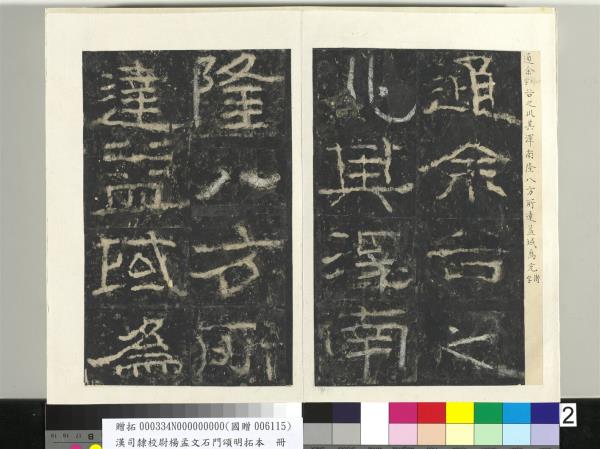 逌余谷之
川其澤南
隆八方所
達益域爲
逌余谷之川其澤南隆八方所達益域爲充
2
贈拓 000334N000000000(國贈 006115)
漢司隸校尉楊孟文石門頌明拓本 冊